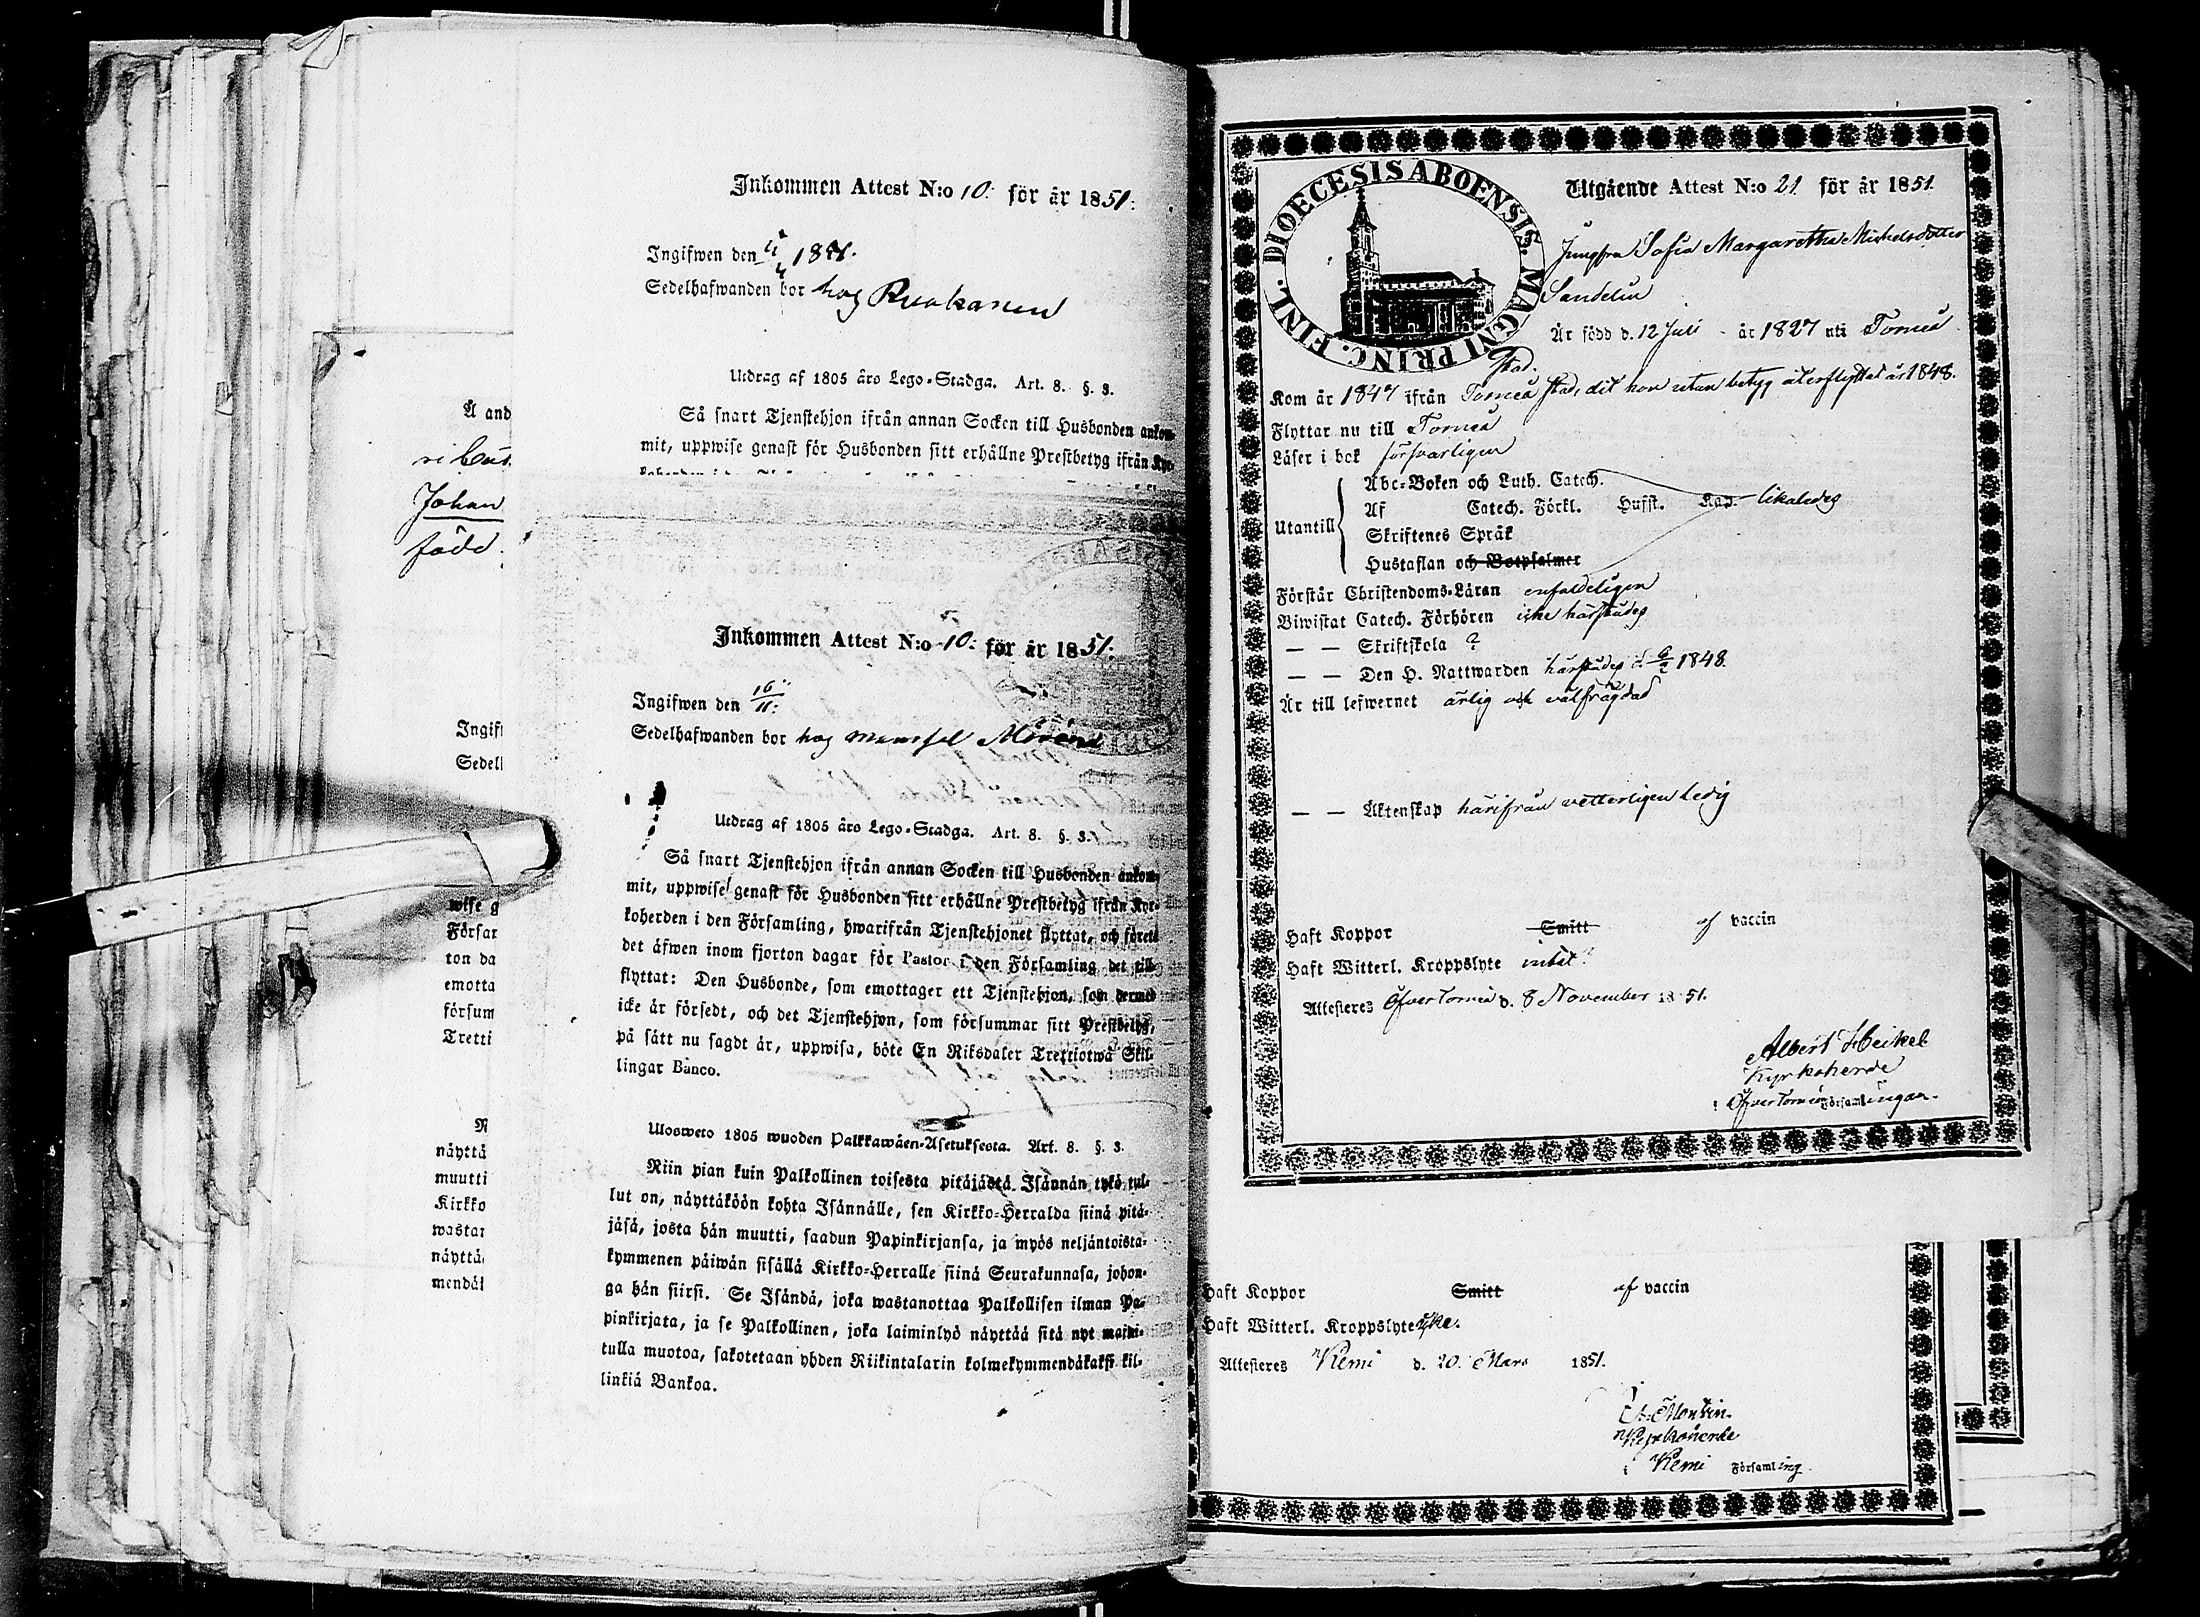 Inkommen Attest N:o 10. för år 1851.
Ingifwen den 1851.
Sedelhafwanden bor hos Ruokanen
Utdrag af 1805 års Lego-Stadga. Art. 8. §. 3.
Så snart Tjenstehjon ifrån annan Socken till Husbonden ankom-
mit, uppwise genast för Husbonden sitt erhållne Prestbetyg ifrån Kyr-
Å and
Johan
född
Ingif
Sedel
wise g
Försar
ton da
emotta
försum
Tretti
N
näyttä
muutti
Kirkko
wastar
näyttä
mendäk
Inkommen Attest N:o 10. för år 1851.
Ingifwen den 16/11.
Sedelhafwanden bor hos mamsel
Utdrag af 1805 års Lego-Stadga. Art. 8. §. 3.
Så snart Tjenstehjon ifrån annan Socken till Husbonden ankom-
mit, uppwise genast för Husbonden sitt erhållne Prestbetyg ifrån Kyr-
koherden i den Församling, hwarifrån Tjenstehjonet flyttat, och förete
det äfwen inom fjorton dagar för Pastor i den Församling det till-
flyttat: Den Husbonde, som emottager ett Tjenstehjon, som dermed
icke är försedt, och det Tjenstehjon, som försummar sitt Prestbetyg,
på sätt nu sagdt är, uppwisa, böte En Riksdaler Trettiotwå Skil-
lingar Banco.
Ulosweto 1805 wuoden Palkkawäen-Asetuksesta. Art. 8. §. 3.
Niin pian kuin Palkollinen toisesta pitäjästä Isännän tykö tul-
lut on, näyttäköön kohta Isännälle, sen Kirkko-Herralda siinä pitä-
jäsä, josta hän muutti, saadun Papinkirjansa, ja myös neljäntoista-
kymmenen päiwän sisällä Kirkko-Herralle siinä Seurakunnasa, johon-
ga hän siirsi. Se Isändä, joka wastanottaa Palkollisen ilman Pa-
pinkirjata, ja se Palkollinen, joka laiminlyö näyttää sitä nyt maini-
tulla muotoa, sakotetaan yhden Riikintalarin kolmekymmendäkaksi kil-
linkiä Bankoa.
DIOECESIS ABOENSIS. MAGNI PRINC. FINL.
Utgående Attest N:o 21 för år 1851.
Jungfru Sofia Margaretha Michelsdotter
Sandelin
Är född d. 12 Juli år 1827 uti Torneå
Stad.
Kom år 1847 ifrån Torneå stad, dit hon utan betyg återflyttat år 1848.
Flyttar nu till Torneå
Läser i bok försvarligen
Abc-Boken och Luth. Catech.
Utantill Af Catech. Förkl. Husst. Kap. likaledes
Skriftenes Språk
Hustaflan och Botpsalmer
Förstår Christendoms-Läran enfaldeligen
Biwistat Catech. Förhören icke härstädes
— — Skriftskola ?
— — Den H. Nattwarden härstädes d. 1848.
Är till lefwernet ärlig och välfrägdad
— — Äktenskap härifrån vetterligen ledig
Haft Koppor Smitt af vaccin
Haft Witterl. Kroppslyte intet?
Attesteres ÖfverTorneå d. 8 November 1851.
Albert Heikel
Kyrkoherde
i ÖfverTorneå Församlingar.
Haft Koppor Smitt af vaccin
Haft Witterl. Kroppslyte icke.
Attesteres Kemi d. 20. Mars 1851.
Kyrkoherde
i Kemi Församling